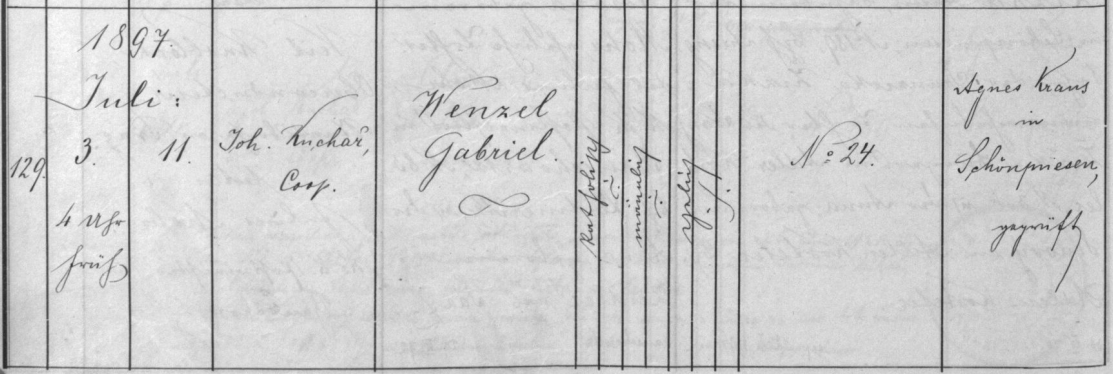 1897
Juli:
129.
3.
11.
4 Uhr
früh
Joh. Kuchař,
Coop.
Wenzel
Gabriel.
katholisch
männlich
ehelich
No 24.
Agnes Kraus
in
Schönpriesen,
geprüft